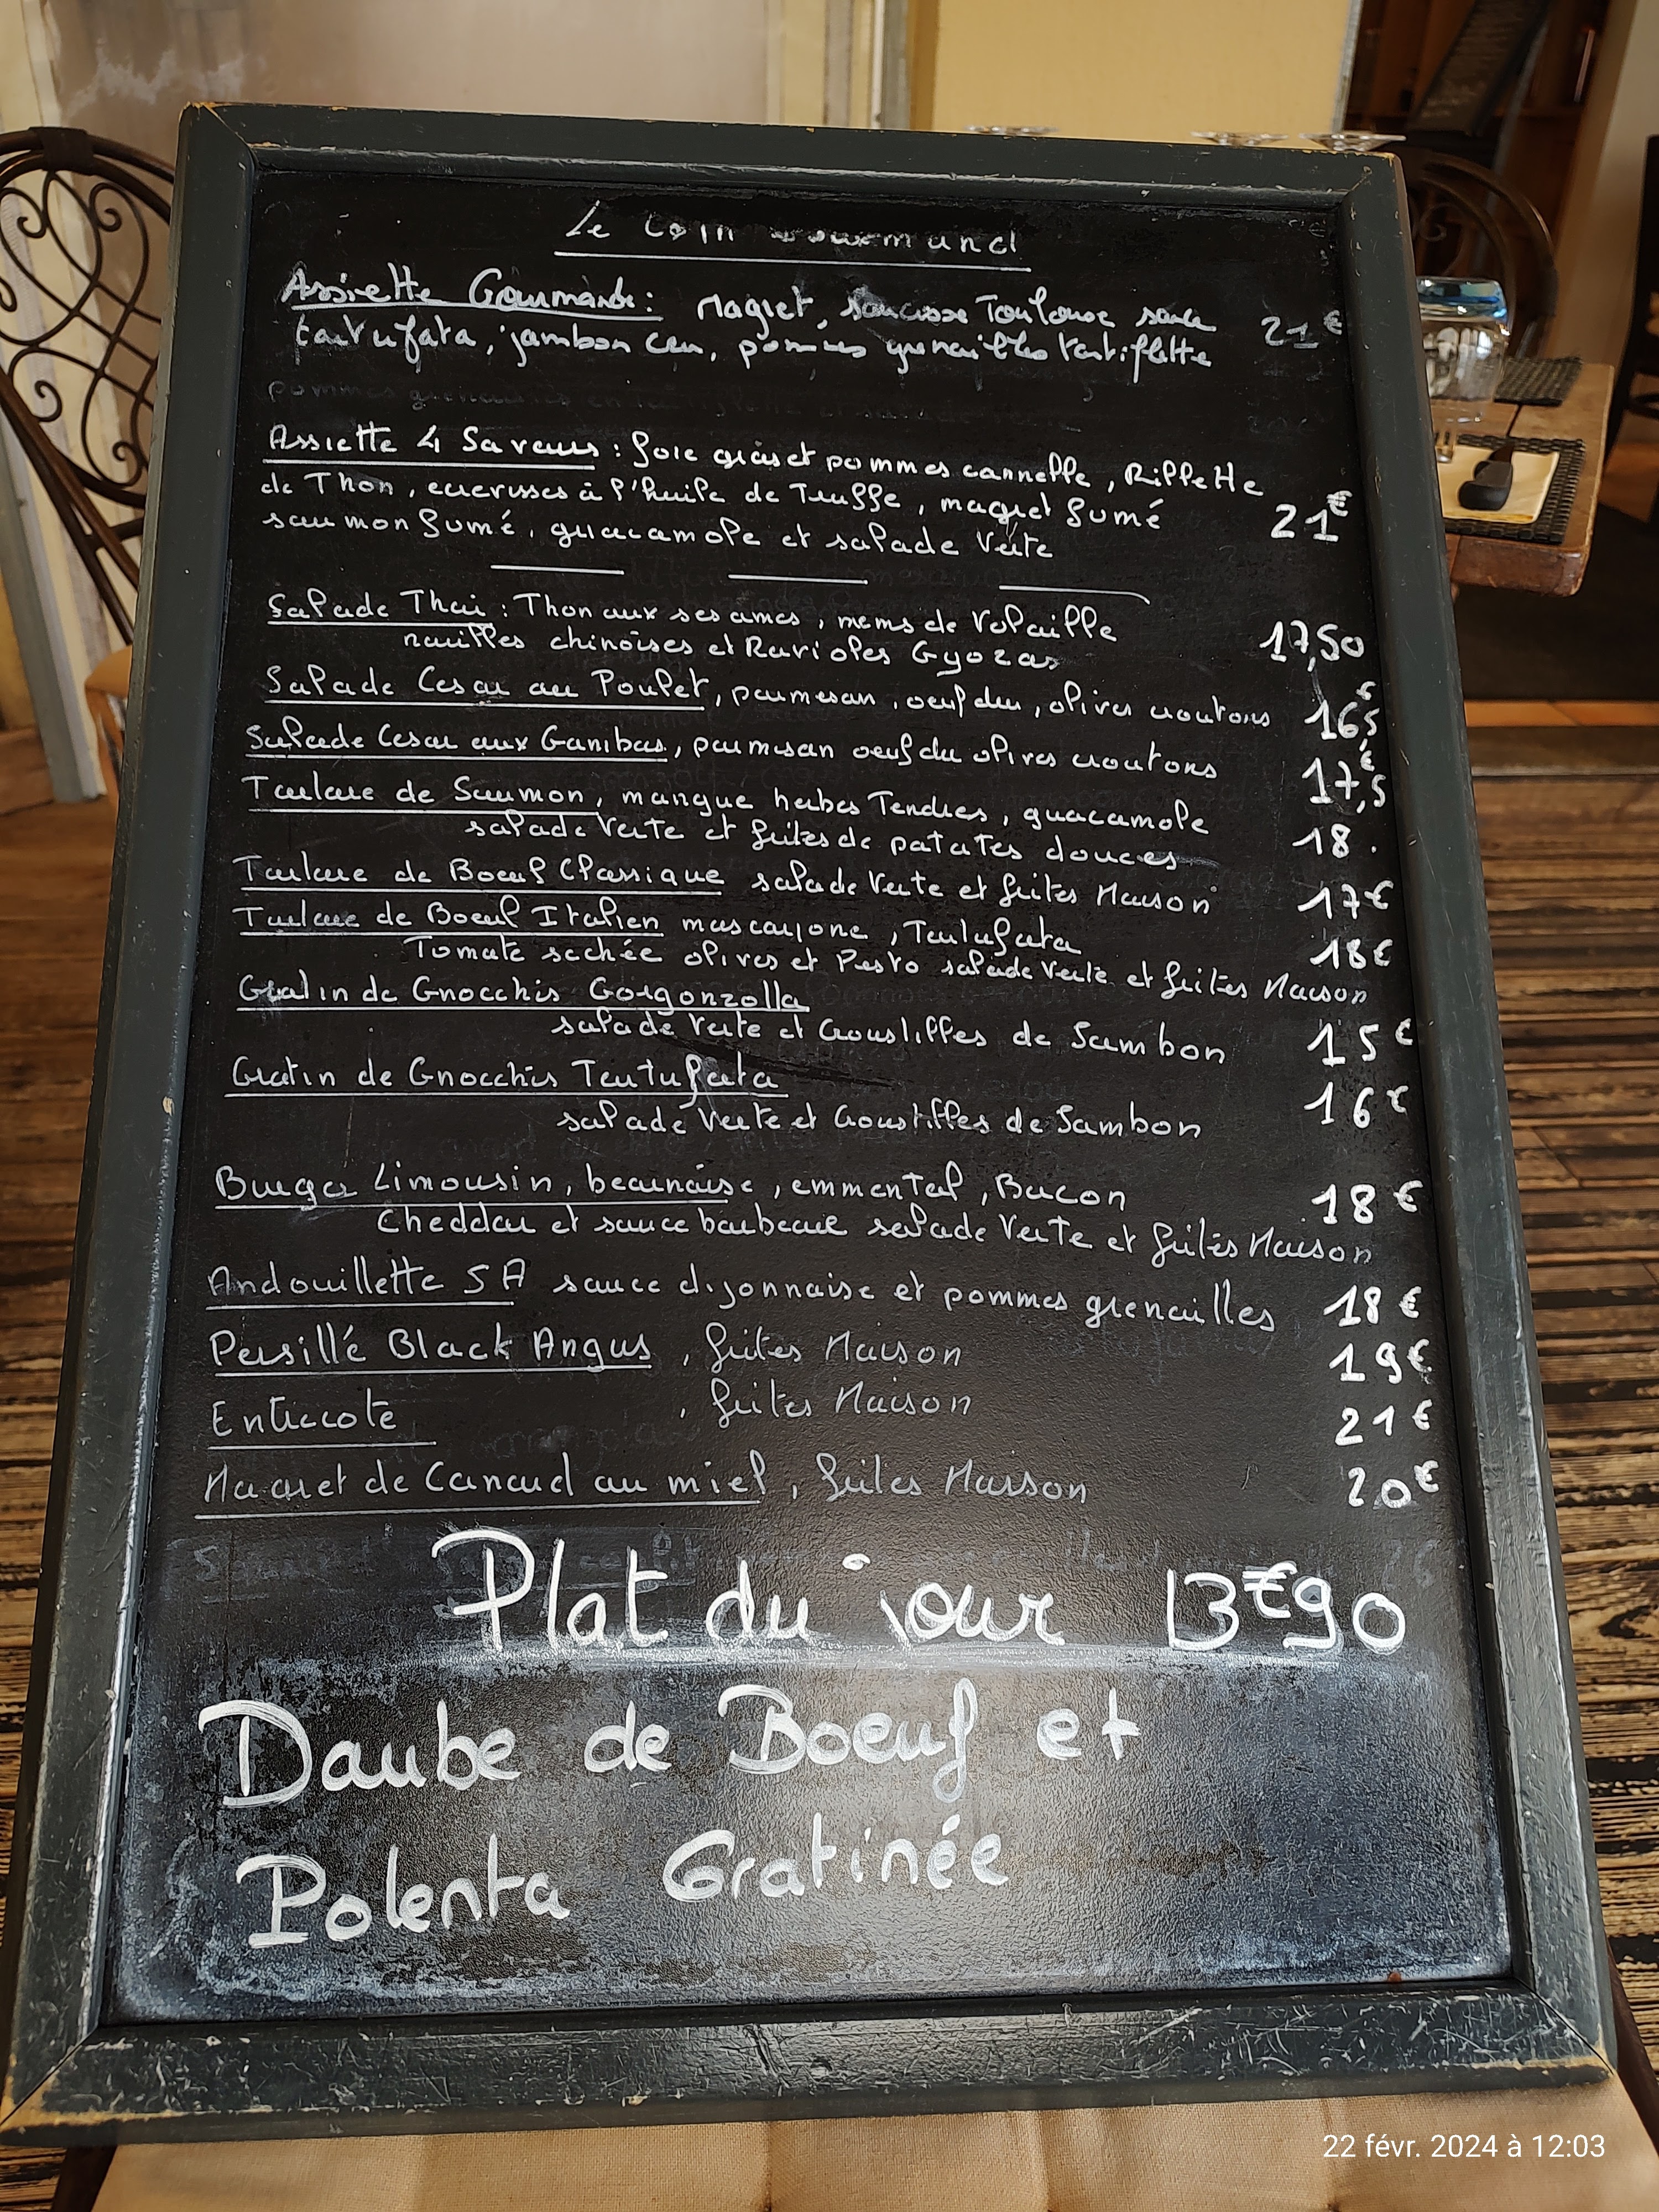 Le Coin Gourmand
Assiette Gourmande : Magret, saucisse Toulouse sauce
tartufata, jambon cru, pommes grenailles tartiflette 21€
Assiette 4 Saveurs : foie gras et pommes cannelle, Rillette
de Thon, ecrevisses à l'huile de Truffe, magret fumé 21€
saumon fumé, guacamole et salade verte
Salade Thai : Thon aux sesames, nems de Volaille 17,50
nouilles chinoises et Ravioles Gyozas
Salade Cesar au Poulet, parmesan, oeuf dur, olives croutons 16,5€
Salade Cesar aux Gambas, parmesan oeuf dur olives croutons 17,5€
Tartare de Saumon, mangue herbes Tendres, guacamole
salade verte et frites de patates douces 18.
Tartare de Boeuf Classique salade verte et frites Maison 17€
Tartare de Boeuf Italien mascarpone, Tartufata 18€
Tomate sechée olives et Pesto salade verte et frites Maison
Gratin de Gnocchis Gorgonzolla
salade verte et Croustilles de Jambon 15€
Gratin de Gnocchis Tartufata
salade verte et Croustilles de Jambon 16€
Burger Limousin, bearnaise, emmental, Bacon 18€
Cheddar et sauce barbecue salade verte et frites Maison
Andouillette 5A sauce dijonnaise et pommes grenailles 18€
Persillé Black Angus, frites Maison 19€
Entrecote, frites Maison 21€
Magret de Canard au miel, frites Maison 20€
Plat du jour 13€90
Daube de Boeuf et
Polenta Gratinée
22 févr. 2024 à 12:03